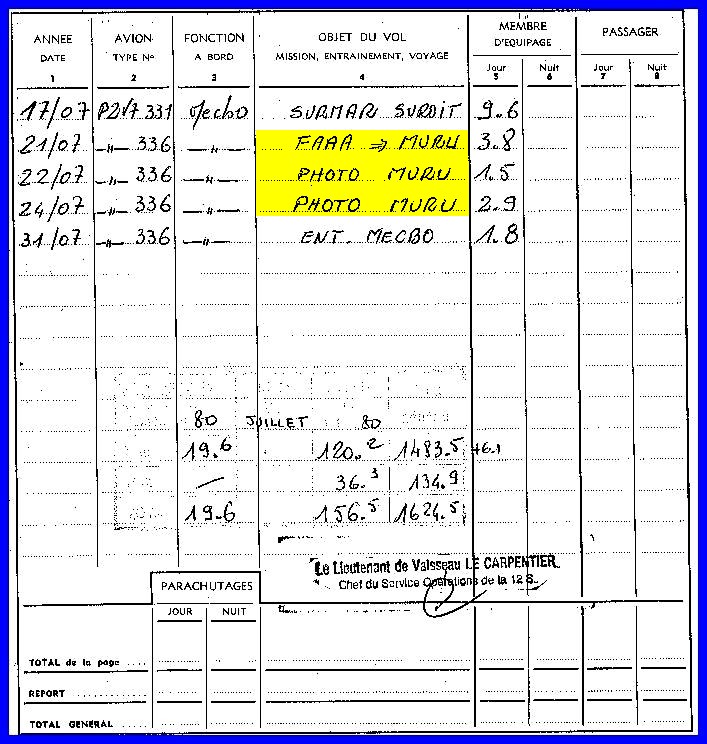 ANNEE AVION FONCTION OBJET DU VOL MEMBRE D'EQUIPAGE PASSAGER
DATE TYPE No A BORD MISSION, ENTRAINEMENT, VOYAGE Jour Nuit Jour Nuit
1 2 3 4 5 6 7 8
17/07 P2V7 331 Mecbo SURMAR SURDIT 9.6
21/07 -"- 336 -"- FAAA ⇒ MURU 3.8
22/07 -"- 336 -"- PHOTO MURU 1.5
24/07 -"- 336 -"- PHOTO MURU 2.9
31/07 -"- 336 -"- ENT. MECBO 1.8
80 JUILLET 80
19.6 120.2 1483.5 +6.1
— 36.3 134.9
19.6 156.5 1624.5
Le Lieutenant de Vaisseau LE CARPENTIER
Chef du Service Opérations de la 12 S.
PARACHUTAGES
JOUR NUIT
TOTAL de la page
REPORT
TOTAL GENERAL